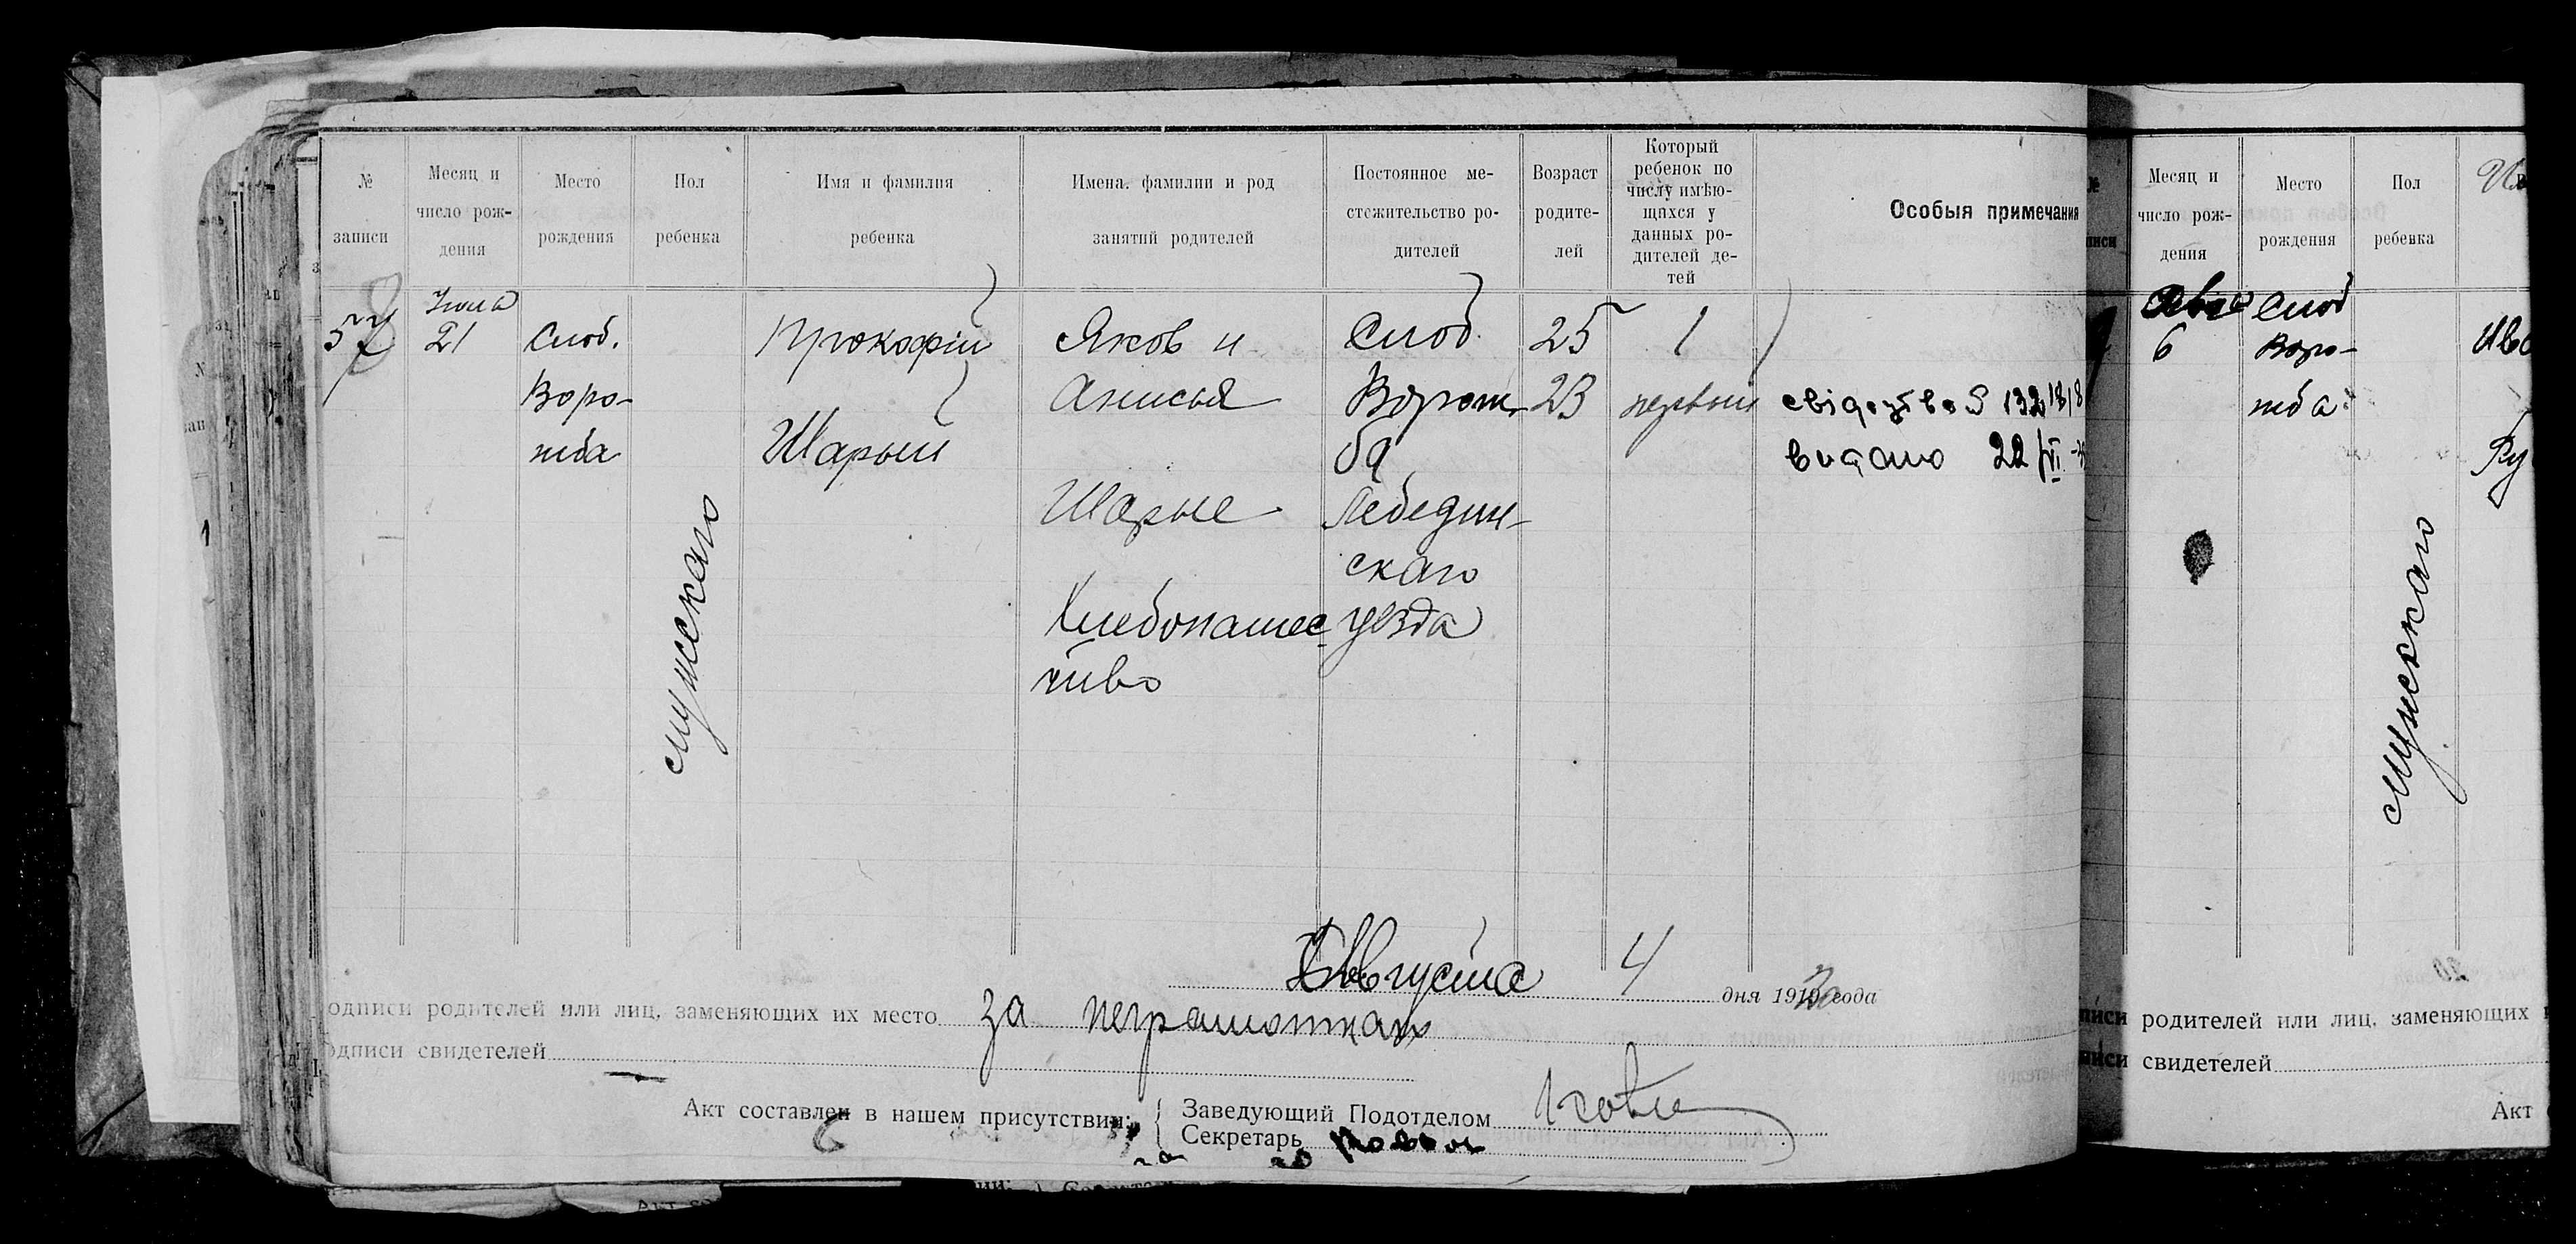 №
записи
Месяц и
число рож-
дения
Место
рождения
Пол
ребенка
Имя и фамилия
ребенка
Имена. фамилии и род
занятий родителей
Постоянное ме-
стожительство ро-
дителей
Возраст
родите-
лей
Который
ребенок по
числу имѣю-
щихся у
данных ро-
дителей де-
тей
Особыя примечания
57
21
Слоб.
Воро-
жба
мужскаго
Прокофій
Шарый
Яков и
Анисья
Шарые
Хлебопашес
тво
Слоб.
Ворож-
ба
Лебедин-
скаго
уезда
25
23
1
первый
свідоцтво
видано 22/VI
Августа 4 дня 1919 года
одписи родителей или лиц, заменяющих их место за неграмотнаго
одписи свидетелей
Акт составлен в нашем присутствии:
Заведующий Подотделом
Секретарь
Месяц и
число рож-
дения
Место
рождения
Пол
ребенка
6
Слоб
Воро-
жба
мужскаго
писи родителей или лиц, заменяющих
писи свидетелей
Акт